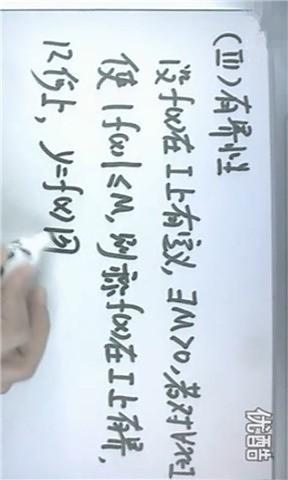 (Ⅲ)有界性
设f(x)在I上有定义,∃M>0,若对∀x∈I
使|f(x)|≤M,则称f(x)在I上有界,
几何上,y=f(x)图
优酷